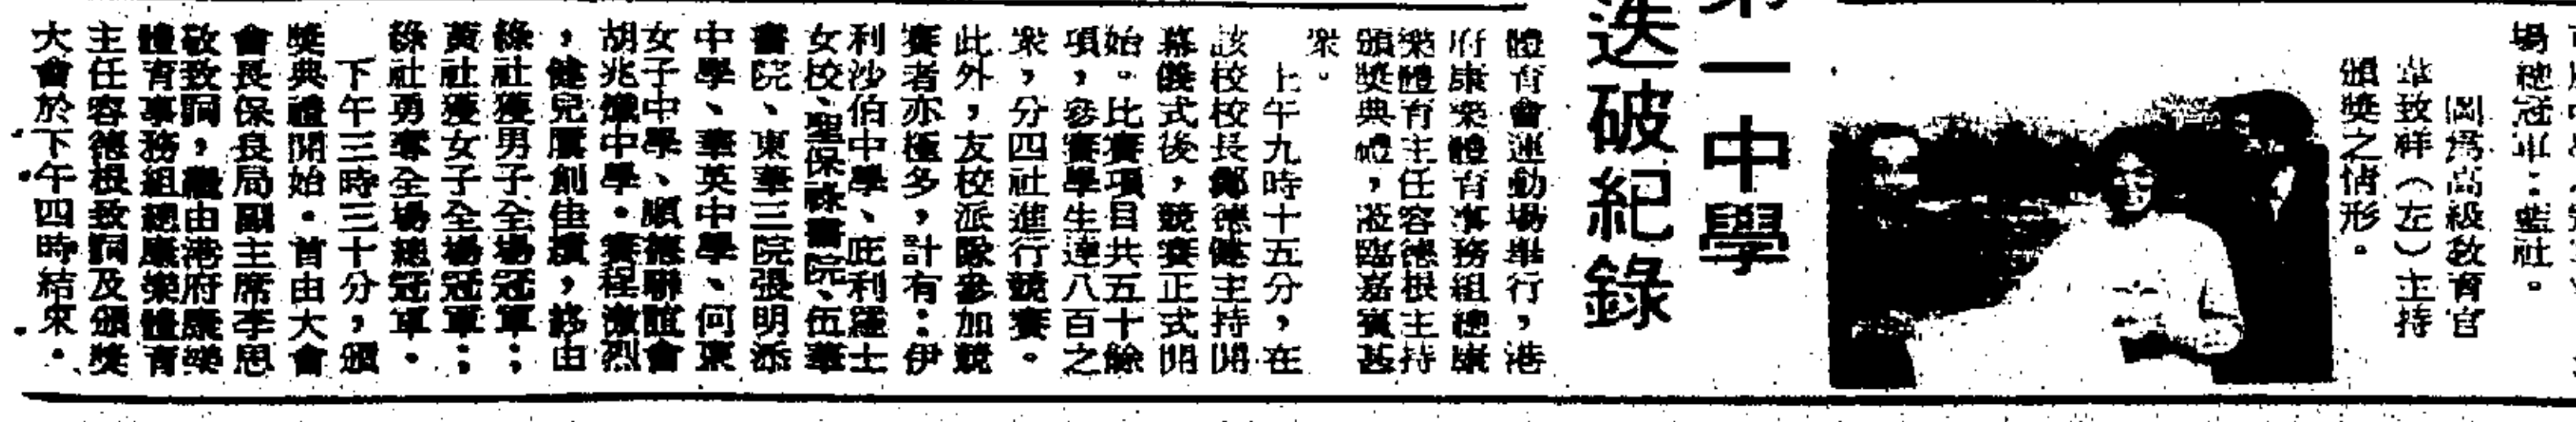 場總冠軍：藍社。
圖爲高級教育官
韋致祥（左）主持
頒獎之情形。
第一中學
迭破紀錄
體育會運動場舉行，港
府康樂體育事務組總康
樂體育主任容德根主持
頒獎典禮，蒞臨嘉賓甚
衆。
上午九時十五分，在
該校校長鄭德健主持開
幕儀式後，競賽正式開
始。比賽項目共五十餘
項，參賽學生達八百之
衆，分四社進行競賽。
此外，友校派隊參加競
賽者亦極多，計有：伊
利沙伯中學、庇利羅士
女校、聖保祿書院、伍華
書院、東華三院張明添
中學、華英中學、何東
女子中學、順德聯誼會
胡兆熾中學。賽程激烈
，健兒屢創佳績，終由
綠社獲男子全場冠軍；
黃社獲女子全場冠軍；
綠社勇奪全場總冠軍。
下午三時三十分，頒
獎典禮開始。首由大會
會長保良局副主席李思
敬致詞，繼由港府康樂
體育事務組總康樂體育
主任容德根致詞及頒獎
大會於下午四時結束。